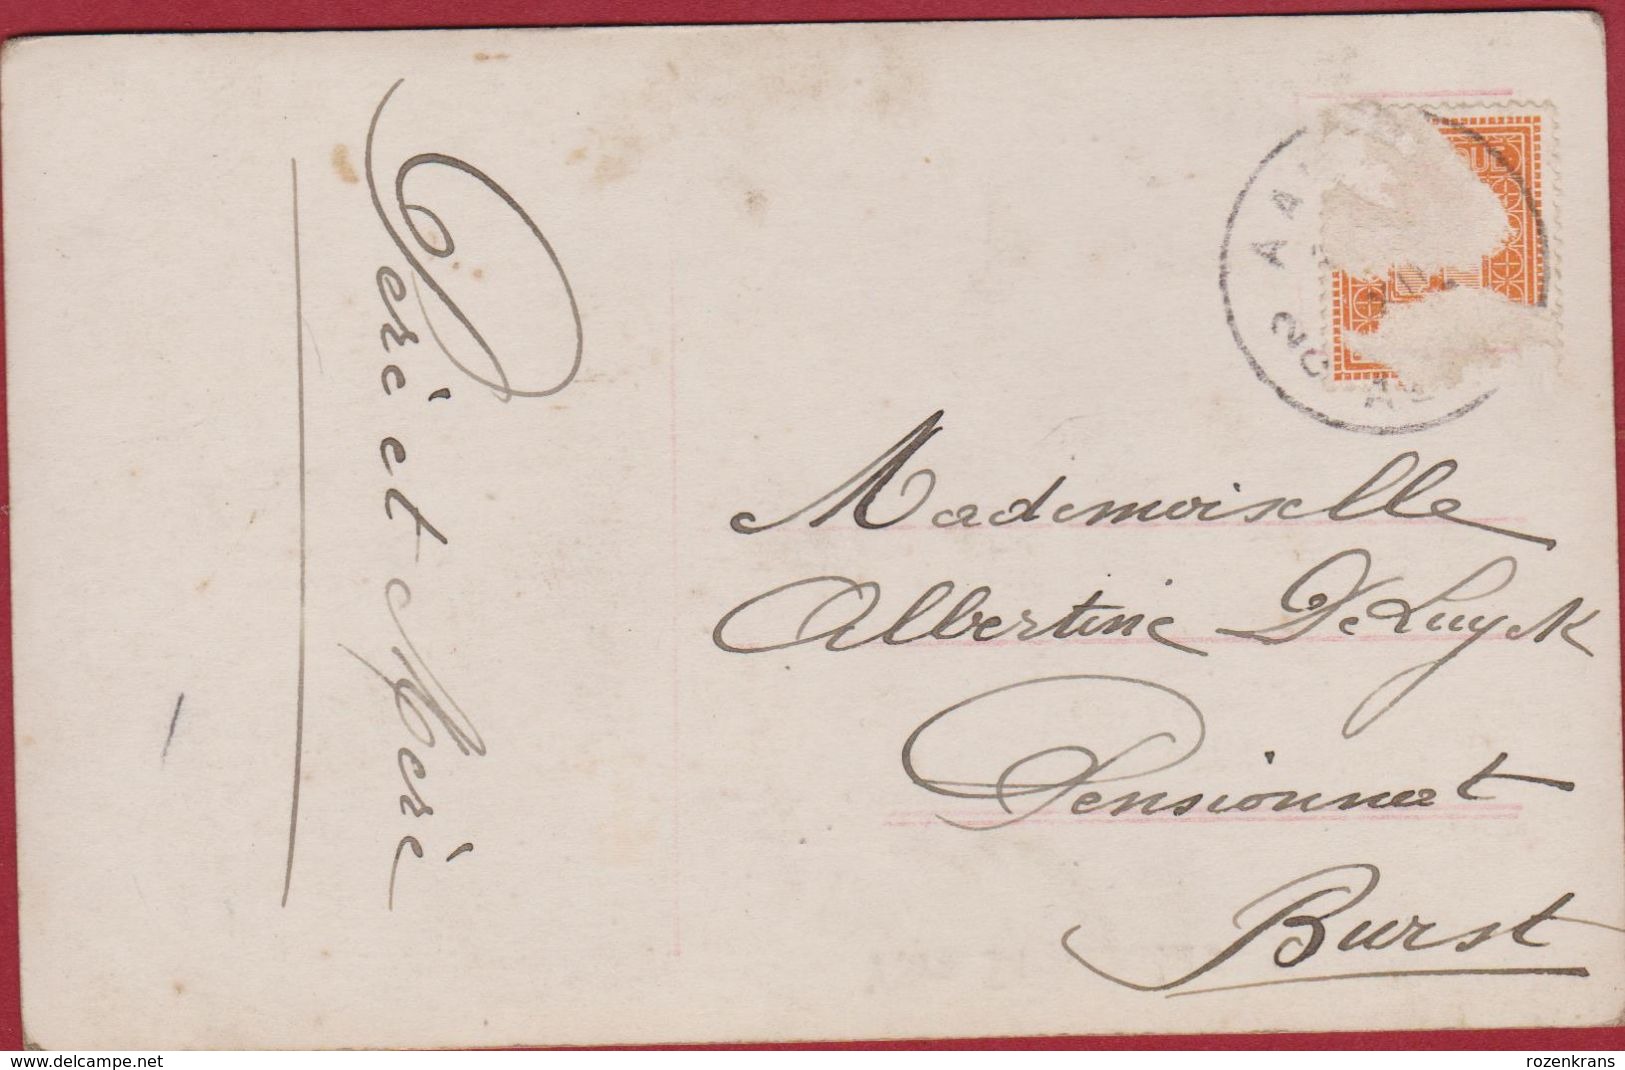 Peré et Meré
Mademoiselle
Albertine De Luyck
Pensionnat
Burst
www.delcampe.net
rozenkrans